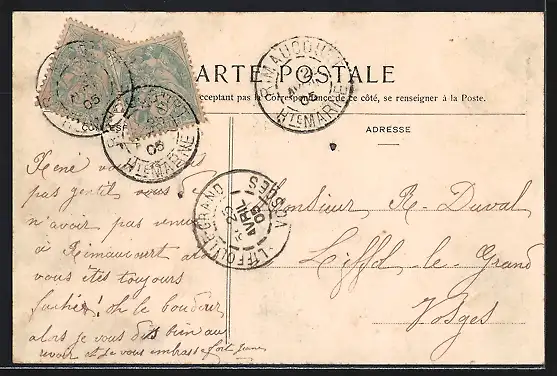 CARTE POSTALE
acceptant pas la Correspondance de ce côté, se renseigner à la Poste.
ADRESSE
RIMAUCOURT
Hte MARNE
05
RIMAUCOURT
Hte MARNE
LIFFOL-LE-GRAND
VOSGES
AVRIL
05
René
pas gentil, vous de
n'avoir pas venu
à Rimaucourt
vous êtes toujours
fachée! oh le boudeur
alors je vous dis bien au
revoir et je vous embrasse fort
Monsieur R. Duval
Liffol-le-Grand
Vosges